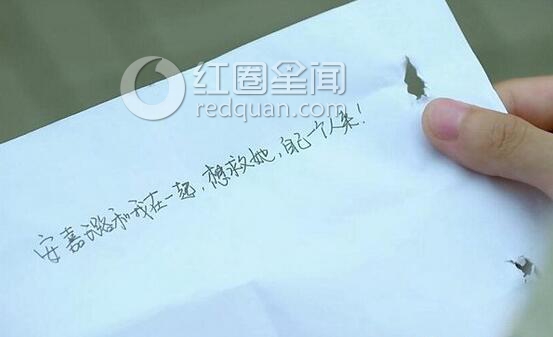 红圈星闻
redquan.com
安嘉璐和我在一起，想救她，自己一个人来！